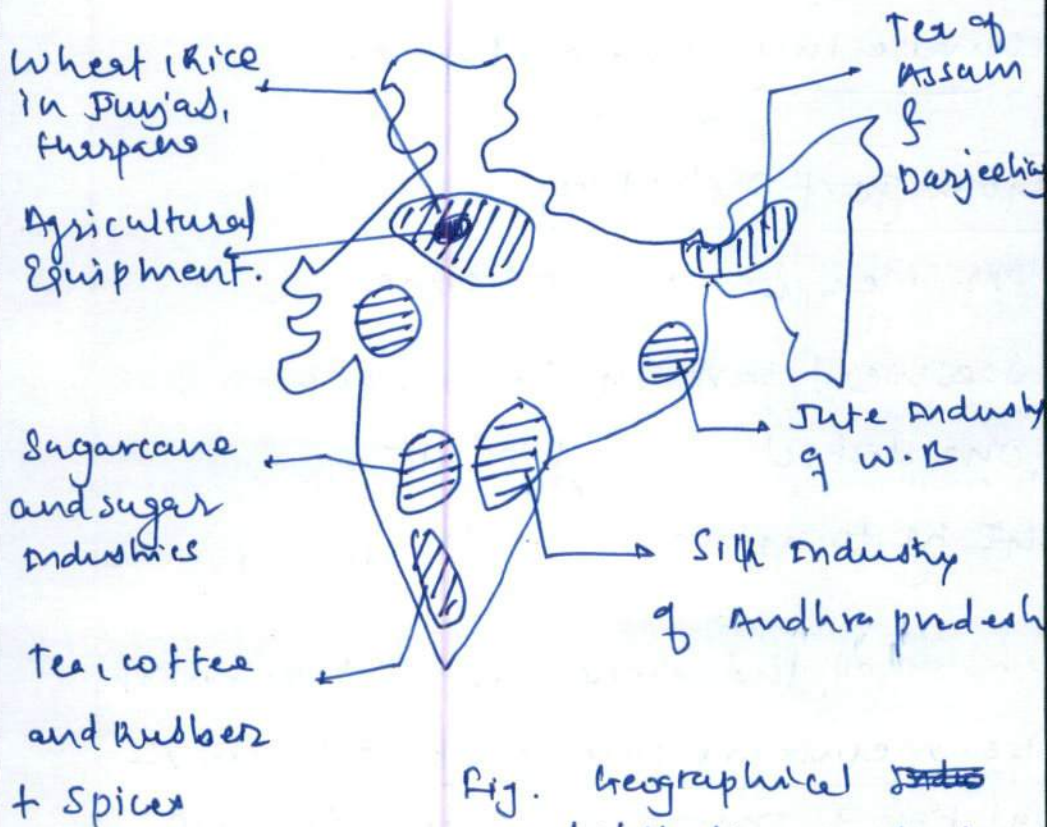 Wheat, Rice
in Punjab,
Haryana
Agricultural
Equipment.
Sugarcane
and sugar
Industries
Tea, coffee
and Rubber
+ Spices
Tea of
Assam
&
Darjeeling
Jute Industry
of W.B
Silk Industry
of Andhra pradesh
Fig. Geographical